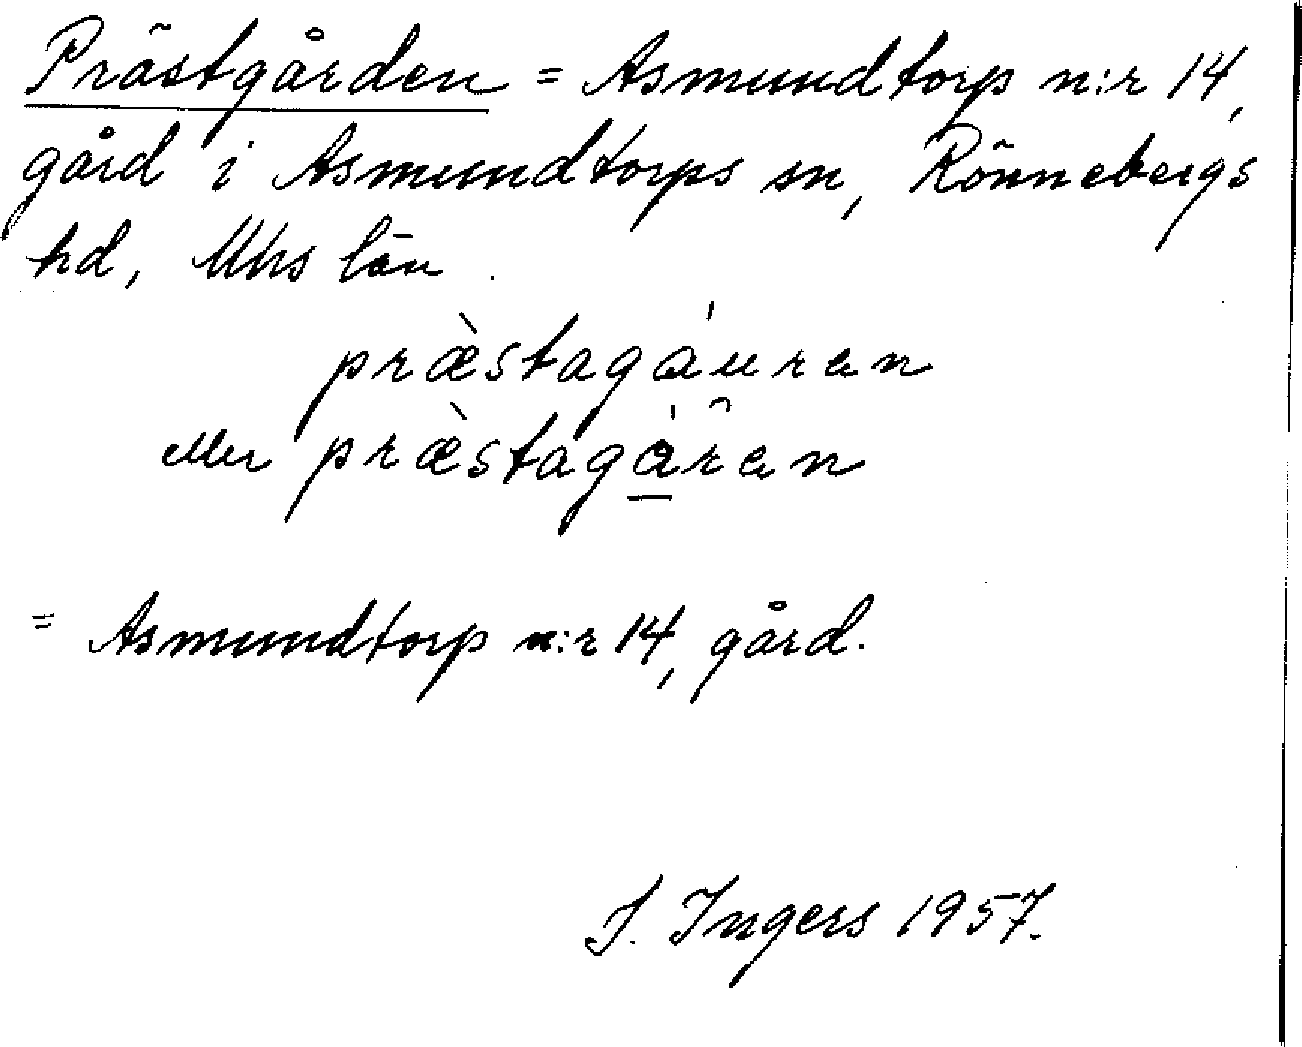 Prästgården = Asmundtorp n:r 14,
gård i Asmundtorps sn, Rönnebergs
hd, Mhs län.
præ̀stagáuren
eller præ̀stagá̱r̂en
= Asmundtorp n:r 14, gård.
I. Ingers 1957.